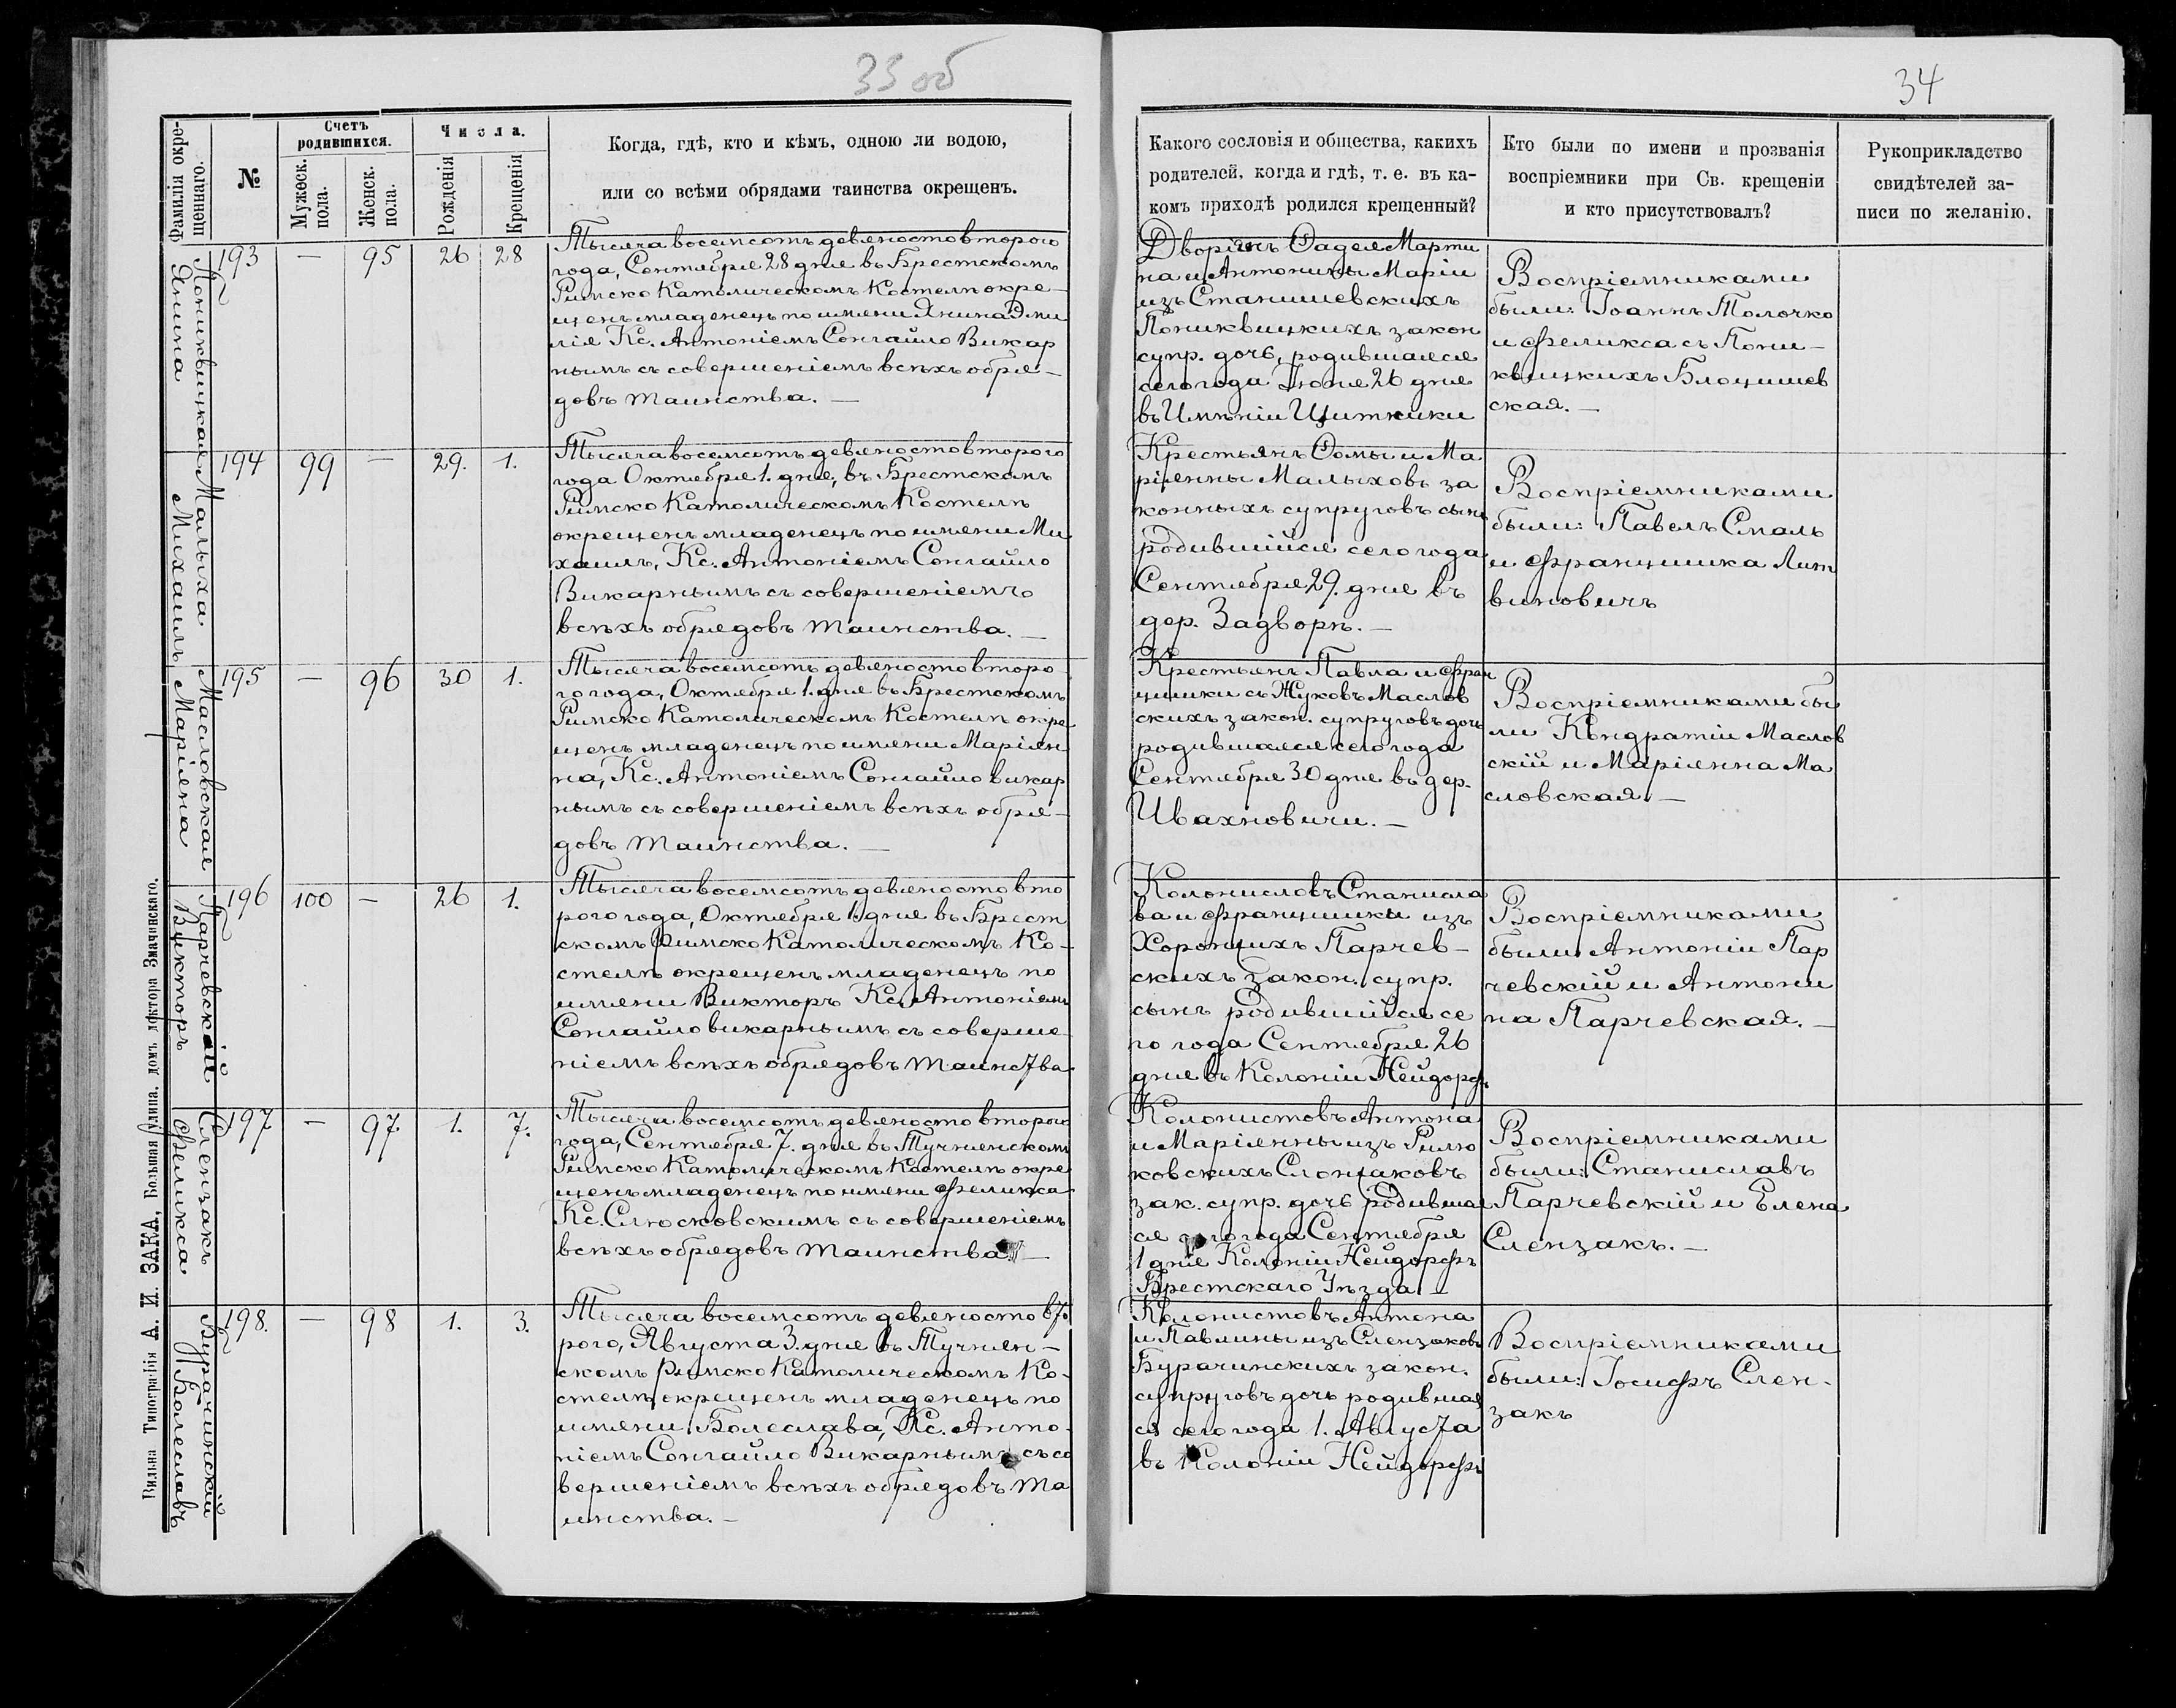 33 об
34
Фамилія окре-
щеннаго.
№
Счетъ
родившихся.
Мужеск.
пола.
Женск.
пола.
Числа.
Рожденія
Крещенія
Когда, гдѣ, кто и кѣмъ, одною ли водою,
или со всѣми обрядами таинства окрещенъ.
Какого сословія и общества, какихъ
родителей, когда и гдѣ, т. е. въ ка-
комъ приходѣ родился крещенный?
Кто были по имени и прозванія
воспріемники при Св. крещеніи
и кто присутствовалъ?
Рукоприкладство
свидѣтелей за-
писи по желанію.
Пониквицкая
Янина
193 — 95 26 28
Тысяча восемсотъ девяносто второго
года, Сентября 28 дня въ Брестскомъ
Римско Католическомъ Костелѣ окре-
щенъ младенецъ по имени Янина Эми
лія Кс. Антоніемъ Сонгайло Викар
нымъ съ совершеніемъ всѣхъ обря-
довъ таинства. —
Дворянъ Фадея Марти
на и Антонины Маріи
изъ Станишевскихъ
Пониквицкихъ закон
супр. дочь, родившаяся
сего года Іюня 26 дня
въ Имѣніи Щитники
Воспріемниками
были: Іоаннъ Толочко
и Феликса съ Пони-
квицкихъ Блоцишев
ская. —
Малыха
Михаилъ
194 99 — 29. 1.
Тысяча восемсотъ девяносто второго
года Октября 1. дня, въ Брестскомъ
Римско Католическомъ Костелѣ
окрещенъ младенецъ по имени Ми
хаилъ, Кс. Антоніемъ Сонгайло
Викарнымъ съ совершеніемъ
всѣхъ обрядовъ таинства. —
Крестьянъ Фомы и Ма
ріянны Малыховъ за
конныхъ супруговъ сынъ
родившійся сего года
Сентября 29. дня въ
дер. Задворѣ. —
Воспріемниками
были: Павелъ Смаль
и Францишка Лит
виновичъ
Масловская
Маріянна
195 — 96 30 1.
Тысяча восемсотъ девяносто второ
го года, Октября 1. дня въ Брестскомъ
Римско Католическомъ Костелѣ окре
щенъ младенецъ по имени Маріян
на, Кс. Антоніемъ Сонгайло викар
нымъ съ совершеніемъ всѣхъ обря-
довъ таинства. —
Крестьянъ Павла и Фран
цишки съ Жуковъ Маслов
скихъ закон. супруговъ дочь
родившаяся сего года
Сентября 30 дня въ дер.
Ивахновичи. —
Воспріемниками бы
ли Кондратій Маслов
скій и Маріянна Ма
словская. —
Парчевскій
Викторъ
196 100 — 26 1.
Тысяча восемсотъ девяносто вто
рого года, Октября 1 дня въ Брест
скомъ Римско Католическомъ Ко-
стелѣ окрещенъ младенецъ по
имени Викторъ Кс. Антоніемъ
Сонгайло викарнымъ съ соверше-
ніемъ всѣхъ обрядовъ таинства
Колонисловъ Станисла
ва и Францишки изъ
Хоронжихъ Парчев-
скихъ Закон. супр.
сынъ родившійся се
го года Сентября 26
дня въ Колоніи Нейдорфъ
Воспріемниками
были Антоній Пар
чевскій и Антони
на Парчевская. —
Слензакъ
Феликса
197 — 97 1. 7.
Тысяча восемсотъ девяносто второго
года, Сентября 7. дня въ Тучнянскомъ
Римско Католическомъ Костелѣ окре
щенъ младенецъ по имени Феликса
Кс. Слюсковскимъ съ совершеніемъ
всѣхъ обрядовъ таинства —
Колонистовъ Антона
и Маріянны изъ Рилю
ковскихъ Слонзаковъ
зак. супр. дочь родивша
ся сего года Сентября
1 дня Колоніи Нейдорфъ
Брестскаго Уѣзда. —
Воспріемниками
были: Станиславъ
Парчевскій и Елена
Слензакъ. —
Бурачинскій
Болеславъ
198. — 98 1. 3.
Тысяча восемсотъ девяносто вто
рого, Августа 3. дня въ Тучнян-
скомъ Римско Католическомъ Ко-
стелѣ окрещенъ младенецъ по
имени Болеслава, Кс. Анто-
ніемъ Сонгайло Викарнымъ съ со
вершеніемъ всѣхъ обрядовъ та
инства. —
Колонистовъ Антона
и Павлины изъ Слензаковъ
Бурачинскихъ закон.
супруговъ дочь родившая
ся сего года 1. Августа
въ Колоніи Нейдорфъ
Воспріемниками
были: Іосифъ Слен-
закъ
Вильна Типографія А. И. ЗАКА, Большая улица, домъ доктора Змачинскаго.